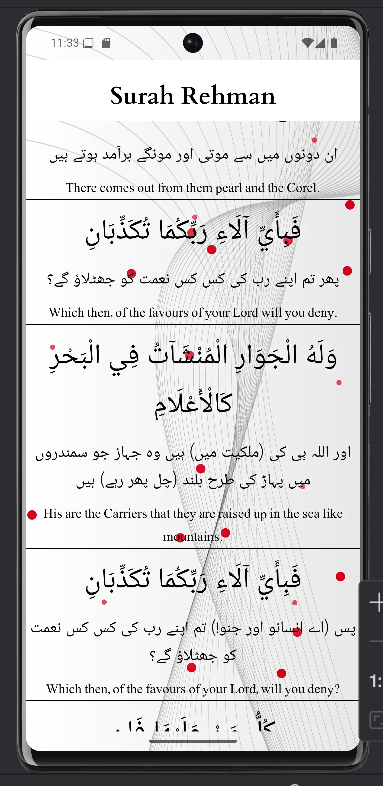 11:33
Surah Rehman
ان دونوں میں سے موتی اور مونگے برآمد ہوتے ہیں
There comes out from them pearl and the Corel.
فَبِأَيِّ آلَاءِ رَبِّكُمَا تُكَذِّبَانِ
پھر تم اپنے رب کی کس کس نعمت کو جھٹلاؤ گے؟
Which then, of the favours of your Lord will you deny.
وَلَهُ الْجَوَارِ الْمُنْشَآتُ فِي الْبَحْرِ
كَالْأَعْلَامِ
اور اللہ ہی کی (ملکیت میں) ہیں وہ جہاز جو سمندروں
میں پہاڑ کی طرح بلند (چل پھر رہے) ہیں
His are the Carriers that they are raised up in the sea like
mountains.
فَبِأَيِّ آلَاءِ رَبِّكُمَا تُكَذِّبَانِ
پس (اے انسانو اور جنو!) تم اپنے رب کی کس کس نعمت
کو جھٹلاؤ گے؟
Which then, of the favours of your Lord, will you deny?
1: